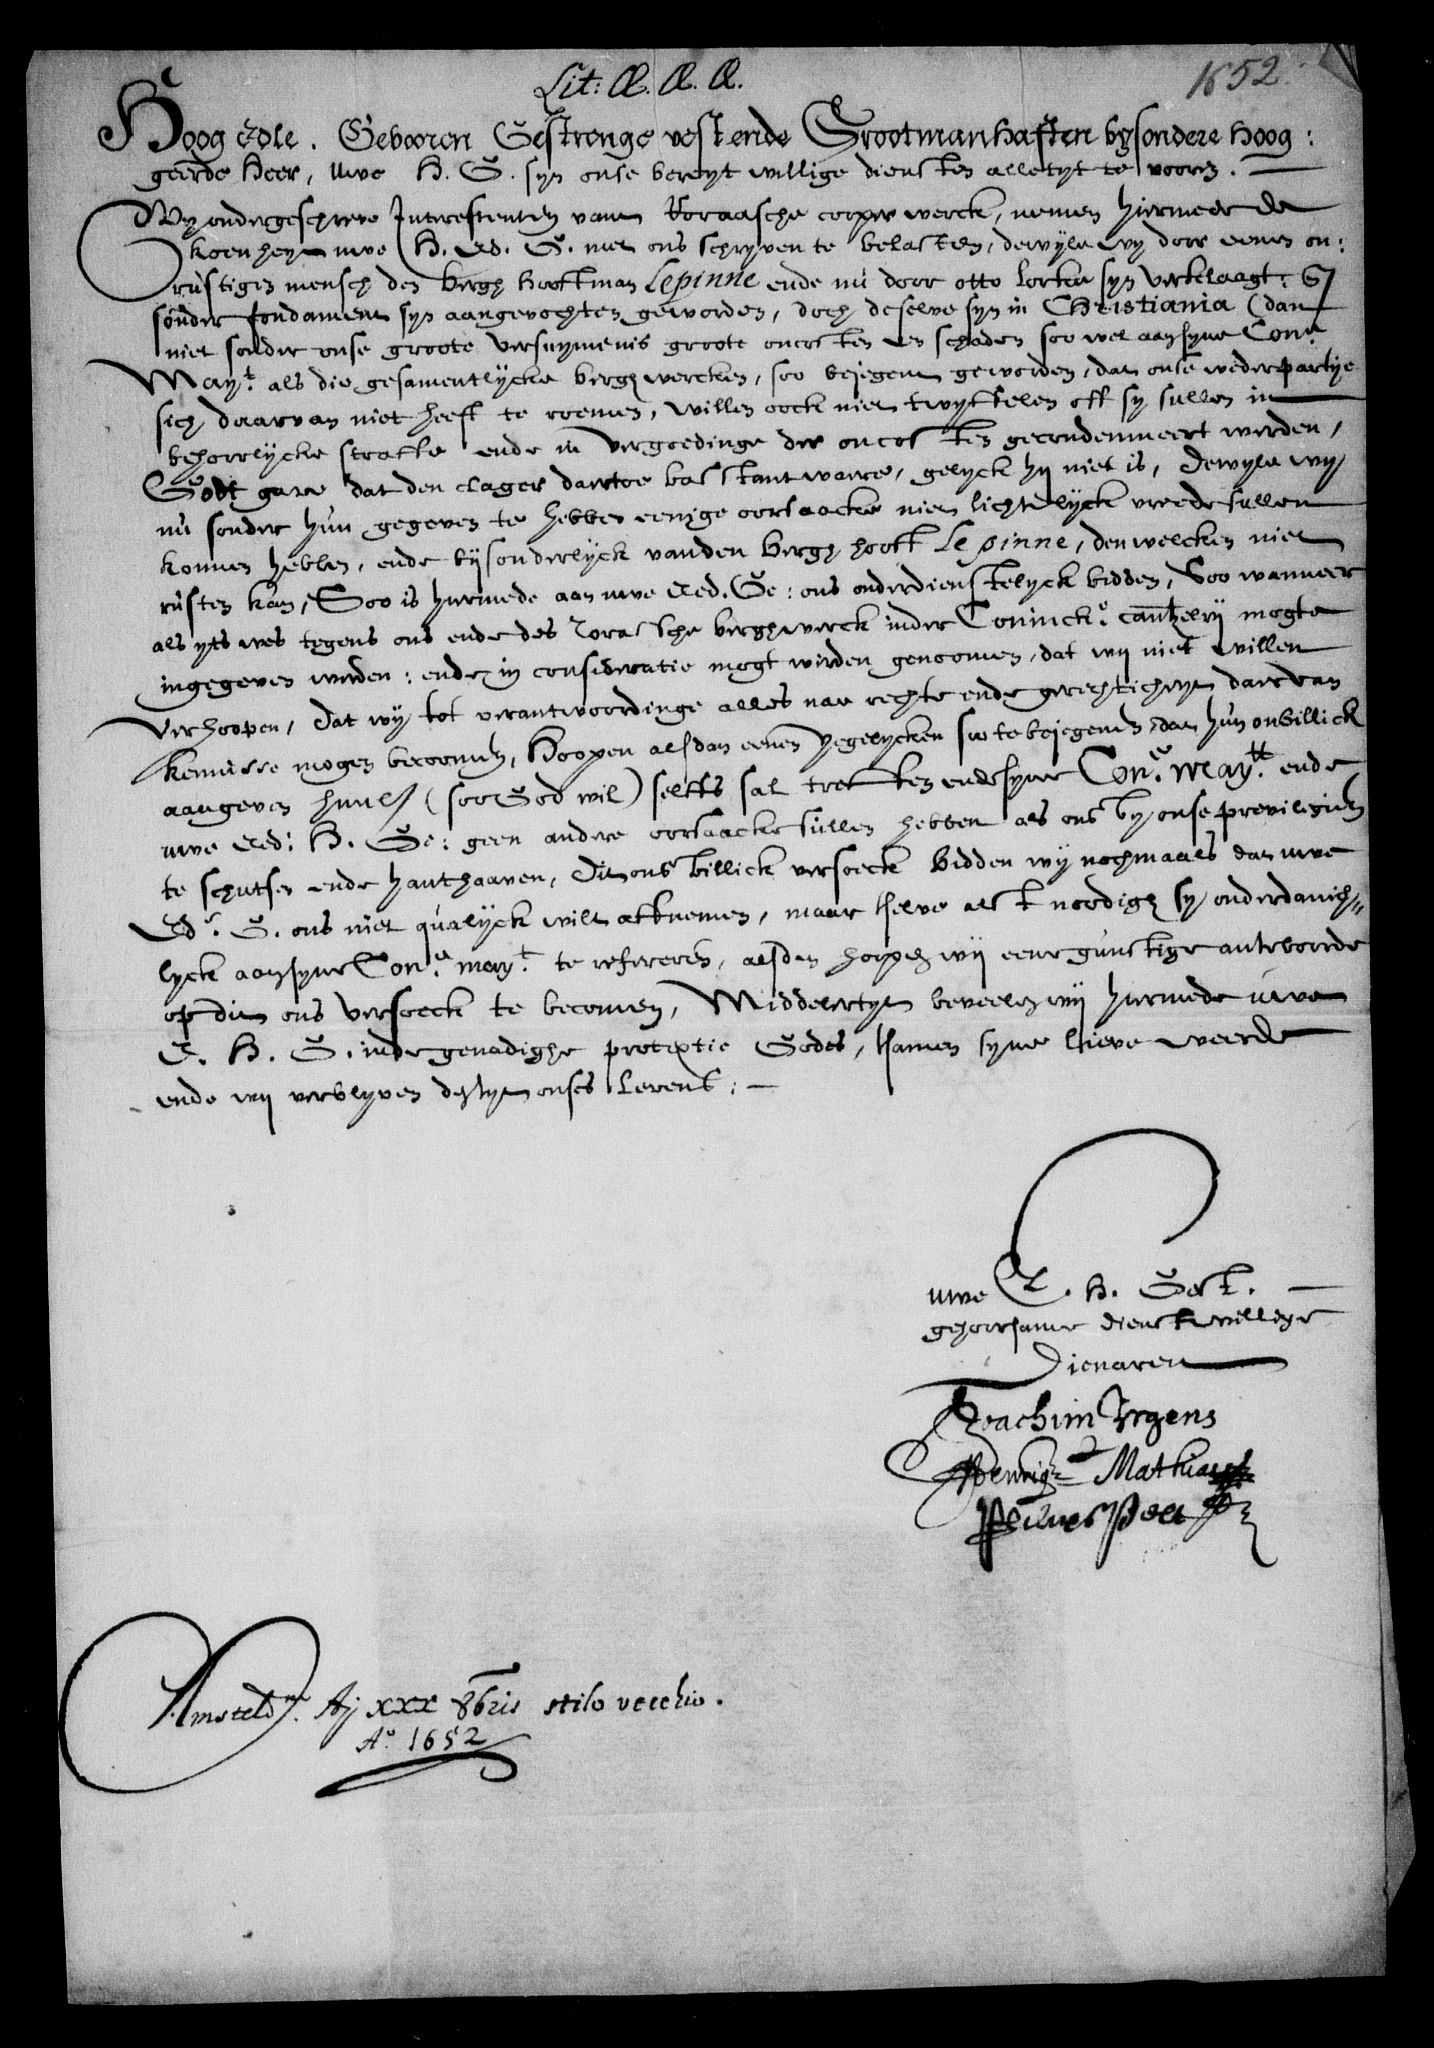 Lit: Æ. Æ. Æ.
1652
Hoog Edle. Gebooren Gestrenge vest ende Grootmanhaften bysondere hoog:
geerde Heer, uwe H. G. syn onse bereyt willige diensten alletyt te voorn.
Wy ondergeschreve Intressenten vant Roraasche coper werck, nemen hiermeer de
koenheyt uwe H. Ed. G. met ons schryven te belasten, dewyle wy door eenen on:
rustigen mensch den bergh hooftman Lepinne ende nu door otto Lorken syn verklaagt: Sy
sonder fondament syn aangevochten geworden, doch deselve syn in Christiania (dan
niet sonder onse groote versuymenis groote oncosten en schaden soo wel aan syne Con.e
May.t als die gesamentlycke bergh wercken, soo bejegent geworden, dat onse wederpartije
sich daarvan niet heeft te roemen, willen oock niet twyffelen off sy sullen in
behoorlycke straffe ende in vergoedinge der oncosten gecondemneert werden,
Godt gave dat den clager daartoe bastant waare, gelyck hij niet is, dewyle wy
nu sonder hun gegeven te hebben eenige oorsaacke niet lichtelyck vrede sullen
konnen hebben, ende bysonderlyck van den bergh hooft Lepinne, den welcken niet
rusten kan, Soo is hiermede aan uwe Ed. Ge: ons onderdienstelyck bidden, Soo wanneer
als yts wes tegens ons ende des Rorassche berghwerck inder Coninck.e cantzelij mogte
ingegeven werden: ende in consideratie mogt werden genoomen, dat wij niet willen
verhoopen, dat wij tot verantwoordinge alles nae rechte ende gerechticheyt daarvan
kennisse mogen becoomen, Hoopen alsdan eenen yegelycken soo te bejegenen, dat hun onbillick
aangeven hunl. (soo God wil) selffs sal treffen ende syne Con.e May.tt ende
uwe Ed: H. Ge: geen andere oorsaacke sullen hebben als ons by onse previlegien
te schutsen ende hanthaaven, Dit ons billick versoeck bidden wij nochmaals dat uwe
Ed.e G. ons niet qualyck wilt affnemen, maar tselve als t noodigh sy onderdanich-
lyck aan syne Con.e may.t te refereren, alsdan hoopen wij eene gunstige antwoorde
op dit ons versoeck te becomen, Middelertyt beveelen wij hiermede uwe
E. H. G. inde genadighe protextie Godes, tsamen syne lieve weerde
ende wij verblyven de tyt onses levens:
uwe E. H. Gest.
gehoorsame dienstwillige
Dienaren
Joachim Irgens
Henrig Mathias
Paues Pels
Amsteld.m Aij xxx 8bris stilo vecchio.
A.o 1652